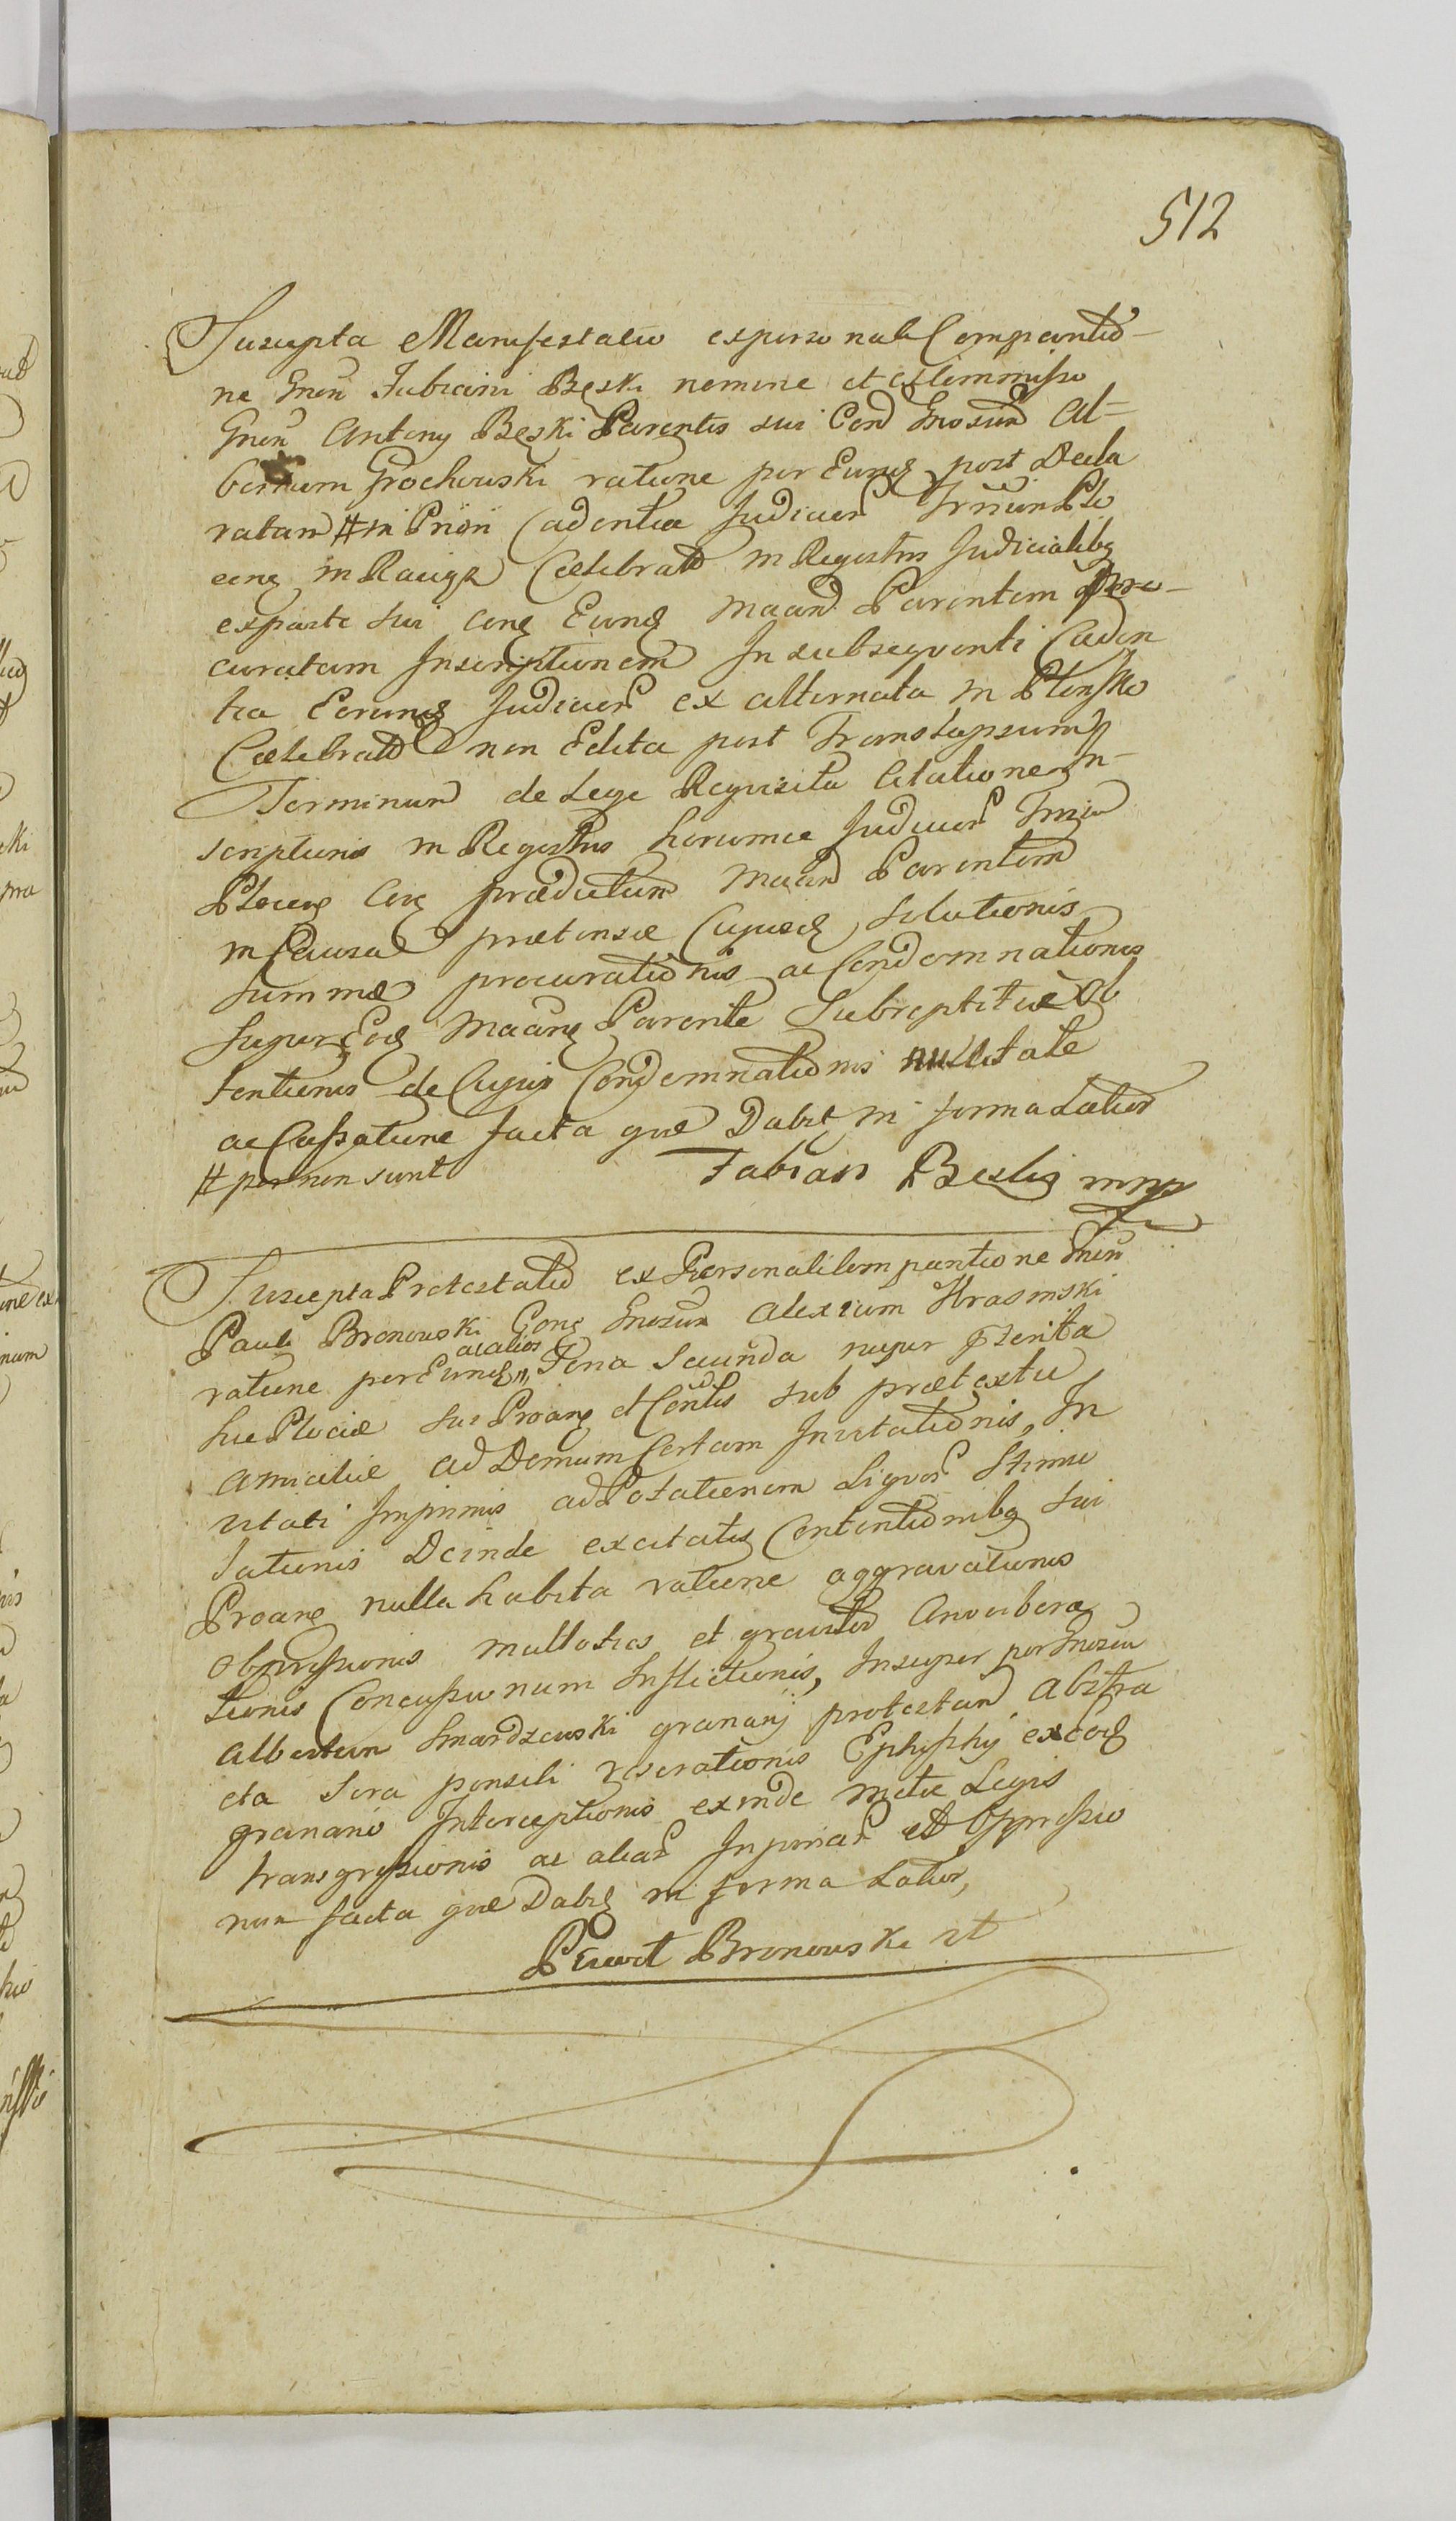 512
Suscepta Manifestatio ex personali Compantio-
ne Gnen Fabiani Bęski nomine et ex Commisso
Gnen Antony Bęski Parentis sui Con Gnosum Al-
bertum Grochowski ratione per Eund post Decla
ratam # in Priori Cadentia Judicior Trium Plo
cen in Raciąż Celebrat in Registris Judicialibq
ex parte sui con Eund Maan Parentem pro-
curatam Inscriptionem In subsequenti Caden
tia Eorund Judicior ex alternata in Płonsko
Celebrat non Edita post Translapsum
Terminum de Lege Requisita Citatione In-
scriptionis in Registris horumce Judicior Trmin
Plocen Con prædictum Maan Parentem
in Causa prætensæ Cujusd solutionis
summæ procurationis ac Condemnationis
super Eod Maane Parente Subreptitiæ Ob
tentionis de Cujus Condemnationis nullitate
ac Cassatione facta quæ Dabit in forma Latior
# per non sunt
Fabian Beski mpp
Suscepta Protestatio ex Personali Compantione Gnen
Pauli Bronowski Con Gnosum Alexium Krasinski
ratione per Eund ac alios Feria Secunda nuper pterita
hic Plociæ sui Proane et Contis sub prætextu
amicitiæ ad Domum Certam Invitationis, In
vitati Imprimis ad Potationem Liquor Stimu
lationis Deinde excitatis Contentionibq sui
Proane nulla habita ratione aggravationis
Oppressionis multoties et graviter Anverbera
tionis Concussionum Inflictionis, Insuper per Gnosum
Albertum Smardzewski granarij protestan Abstra
cta Sera pensili reserationis Ephiphij ex eod
granario Interceptionis exinde metæ Legis
transgressionis ac aliar Injuriar et Oppressio
num facta quæ Dabit in forma Latior,
Paweł Bronowski